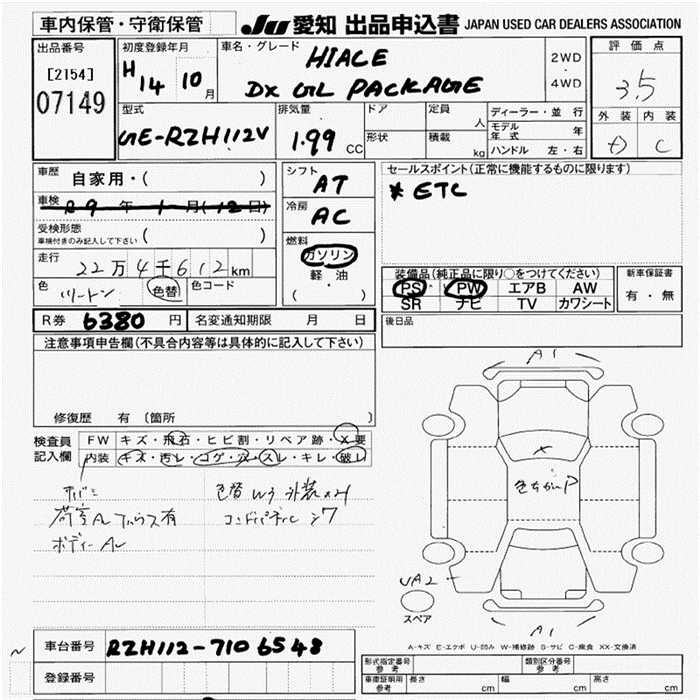 車内保管・守衛保管 JU 愛知 出品申込書 JAPAN USED CAR DEALERS ASSOCIATION
出品番号 初度登録年月 車名・グレード 評価点
[2154] H 14 10月 HIACE 2WD
07149 DX GL PACKAGE ・4WD 3.5
型式 排気量 ドア 定員 人 ディーラー・並行 外装 内装
GE-RZH112V 1.99 CC 形状 積載 kg モデル年式 年 C
ハンドル 左・右
車歴 自家用・( ) シフト AT セールスポイント(正常に機能するものに限ります)
車検 R9年1月(12日) 冷房 AC * ETC
受検形態 車検付きのみ記入して下さい ( )
走行 22万4千612km 燃料 ガソリン 軽・油 ( )
色 ツートン 色替 色コード
装備品(純正品に限り○をつけてください) 新車保証書
PS PW エアB AW 有・無
SR ナビ TV カワシート
R券 6380円 名変通知期限 月 日 後日品
注意事項申告欄(不具合内容等は具体的に記入して下さい)
修復歴 有 〔箇所 〕
検査員記入欄 FW キズ・飛石・ヒビ割・リペア跡・X要
内装 キズ・汚レ・コゲ・穴・スレ・キレ・破レ
荷室A 有
ボディーA
色替 外装
A1
X
色ちがいP
UA2
スペア
A1
A-キズ E-エクボ U-凹み W-補修跡 S-サビ C-腐食 XX-交換済
車台番号 RZH112-7106548
登録番号
形式指定番号 参考 類別区分番号 参考
車庫証明用 参考 長さ cm 幅 cm 高さ cm